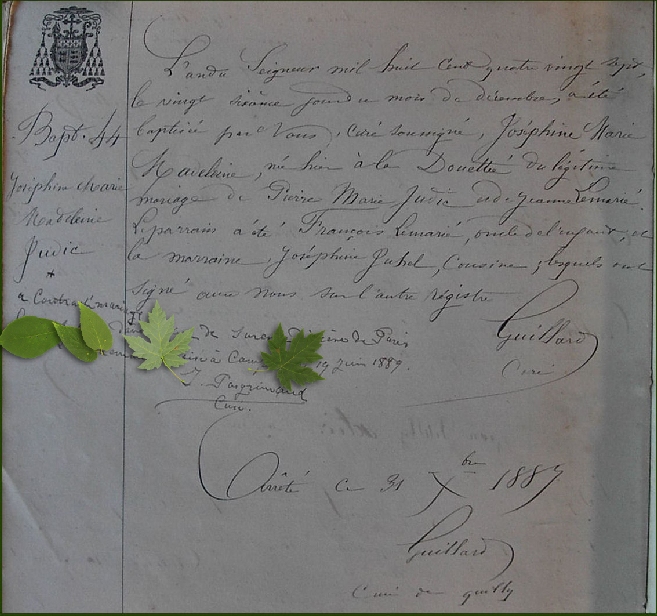 Bapt. 44
Joséphine Marie
Madeleine
Judic
+
a Contracté mariage
L'an du Seigneur mil huit cent quatre vingt sept,
le vingt sixième jour du mois de décembre, a été
baptisée par Nous, curé soussigné, Joséphine Marie
Madeleine, née hier à la Douettée du légitime
mariage de Pierre Marie Judic et de Jeanne Lemarié.
Le parrain a été François Lemarié, oncle de l'enfant, et
la marraine, Joséphine Juhel, Cousine, lesquels ont
signé avec nous sur l'autre régistre
Guillard
Curé
de Paris
14 Juin 1889.
Curé.
Arrêté ce 31 Xbre 1887
Guillard
Curé de quilly